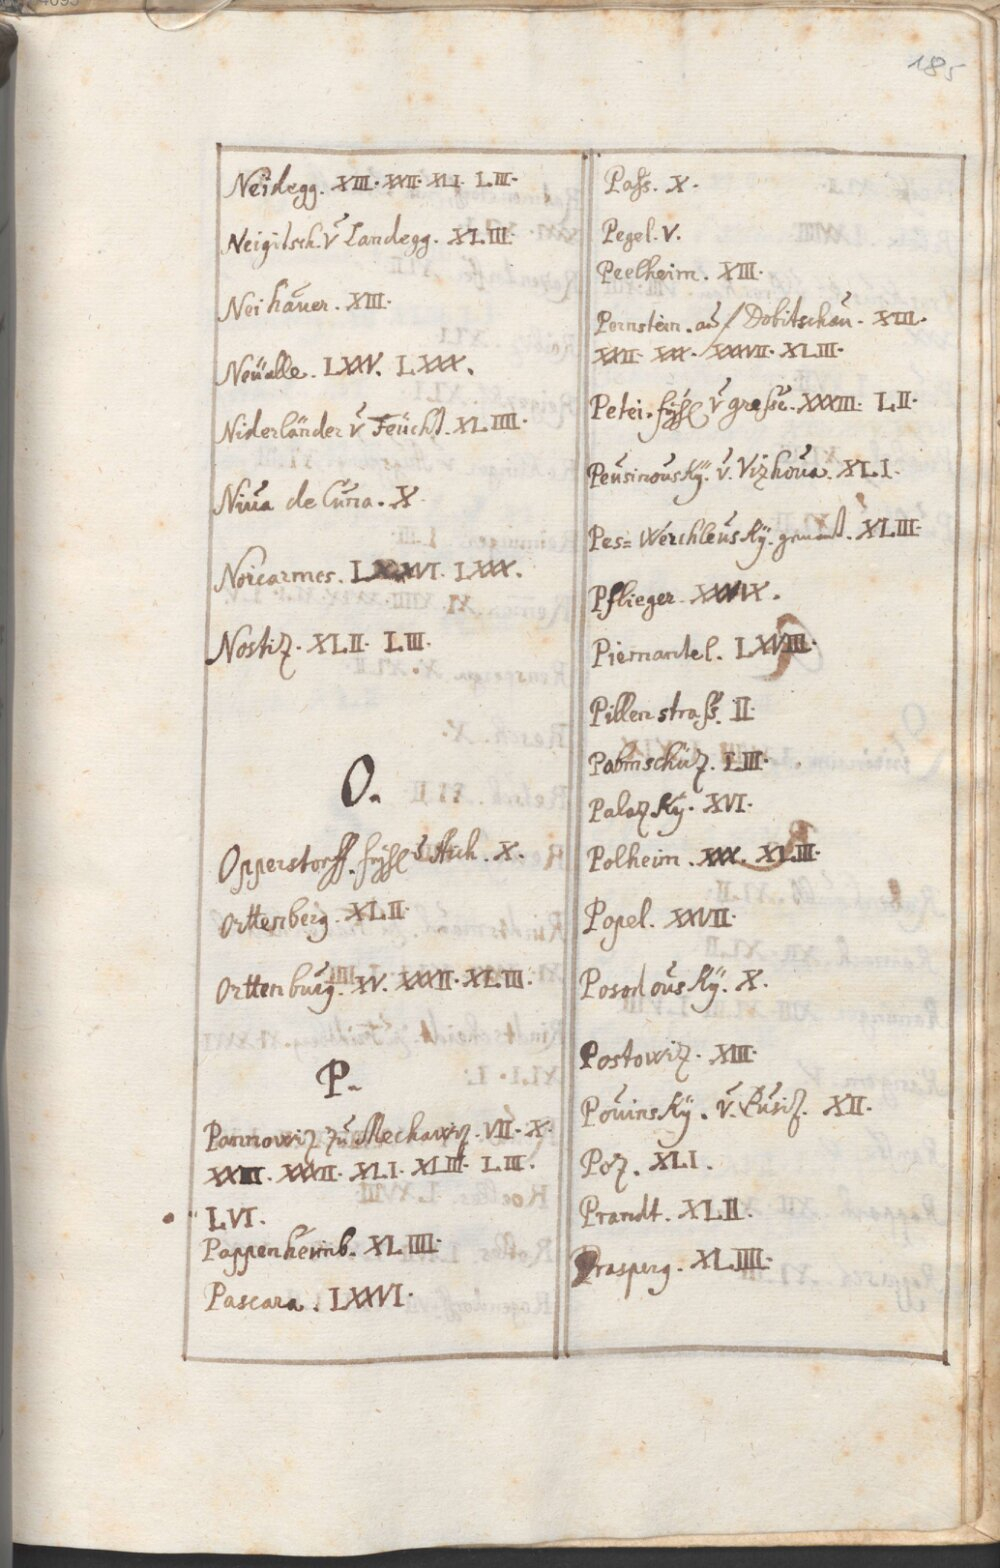 185
Neidegg. XIII. XXII. XLI. LIII.
Neigitsch. v̆ Landegg. XLIII.
Neihaŭer. XIII.
Neüalle. LXXV. LXXX.
Niderländer v̆ Feücht. XLIIII.
Niŭa de Cŭria. X.
Norcarmes. LXXVI. LXXX.
Nostiz. XLII. LIII.
O.
Opperstorff. v̆ Aich. X.
Orttenberg. XLII.
Orttenbŭrg. IIII. XV. XXXII. XLIII.
P.
Pannowiz zŭ Mechawiz. VII. X.
XXIII. XXXII. XLI. XLIII. LIII.
LVI.
Pappenheimb. XLIIII.
Pascara. LXXVI.
Pass. X.
Pegel. V.
Peelheim. XIII.
Pernstein. aŭf Dobitschaŭ. XIII.
XXII. XXX. XXXVII. XLIII.
Petei. v̆ XXXIII. LII.
Peŭsinoŭsky. v̆. Vizhoŭa. XLI.
Pes= Werchleŭsky. genant. XLIII.
Pflieger. XXXIX.
Piemantel. LXVIII.
Pillenstrass. II.
Palmschüz. LIII.
Palazky. XVI.
Polheim. XXX. XLIII.
Popel. XXVII.
Posodoŭsky. X.
Postowiz. XIII.
Poŭinsky. v̆. Lŭsiz. XII.
Poz. XLI.
Prandt. XLII.
Prasperg. XLIIII.